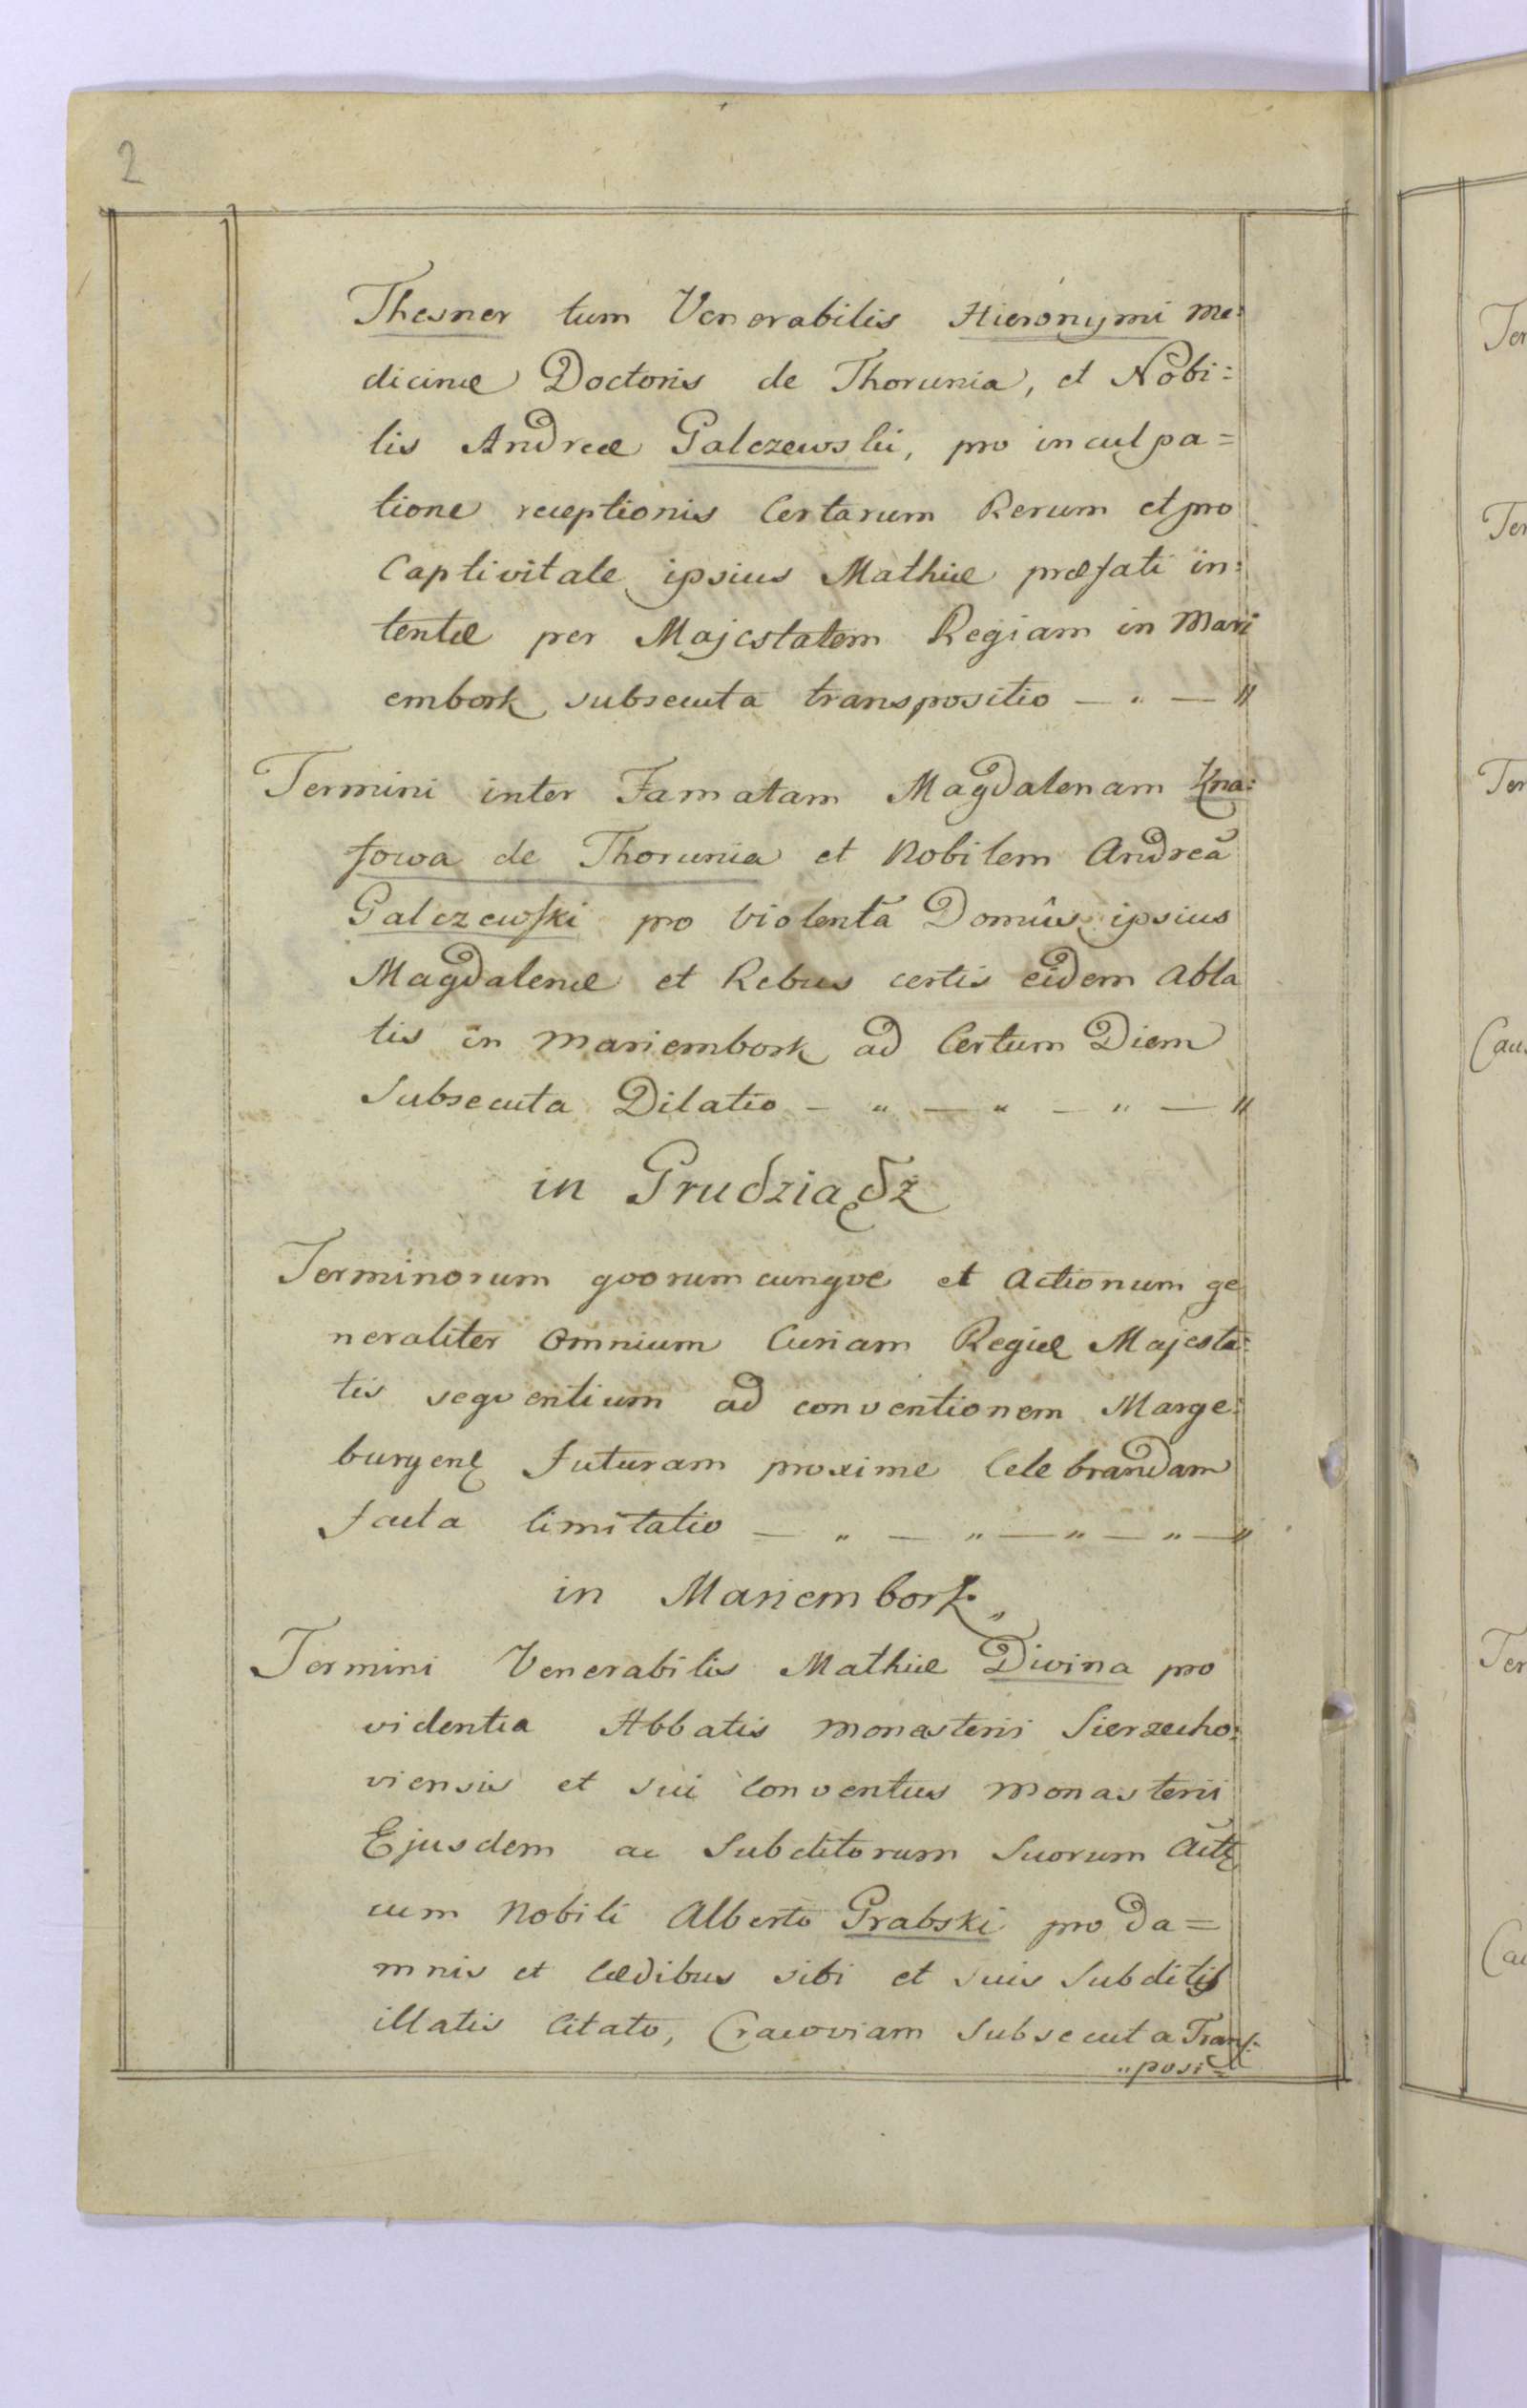 2
Thesner tum Venerabilis Hieronymi me:
dicinæ Doctoris de Thorunia, et Nobi:
lis Andreæ Galczewski, pro inculpa=
tione receptionis Certarum Rerum et pro
Captivitate ipsius Mathiæ præfati in:
tentæ per Majestatem Regiam in Mari
embork subsecuta transpositio — „ — „
Termini inter Famatam Magdalenam Kna:
fowa de Thorunia et Nobilem Andreã
Galczewski pro violentã Domûs ipsius
Magdalenæ et Rebus certis eidem abla
tis in Mariembork ad Certum Diem
Subsecuta Dilatio — „ — „ — „ — „
in Grudziądz
Terminorum qvorumcunqve et Actionum ge
neraliter Omnium Curiam Regiæ Majesta:
tis seqventium ad conventionem Marge:
burgenę futuram proxime Celebrandam
facta limitatio — „ — „ — „ — „ — „
in Mariembork„
Termini Venerabilis Mathiæ Divina pro
videntia Abbatis Monasterii Sierzecho:
viensis et sui Conventus Monasterii
Ejusdem ac Subditorum Suorum
cum Nobili Alberto Grabski pro da=
mnis et Cædibus sibi et suis Subditis
illatis Citato, Cracoviam Subsecuta Trans:
„posi=
Ter
Ter
Ter
Cau
Ter
Cau